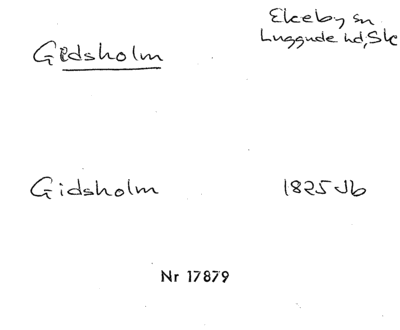 Gedsholm
Ekeby sn
Luggude hd, Sk
Gidsholm
1825 Jb
Nr 17879